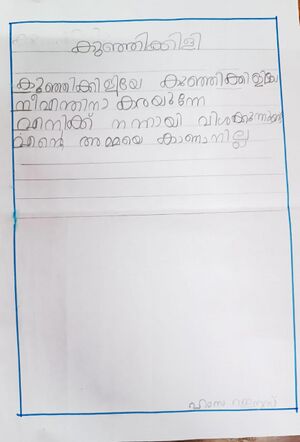 കുഞ്ഞിക്കിളി
കുഞ്ഞിക്കിളിയേ കുഞ്ഞിക്കിളിയേ
നീഎന്തിനാ കരയുന്നേ
എനിക്ക് നന്നായി വിശക്കുന്നുണ്ട്
എന്റെ അമ്മയെ കാണാനില്ല